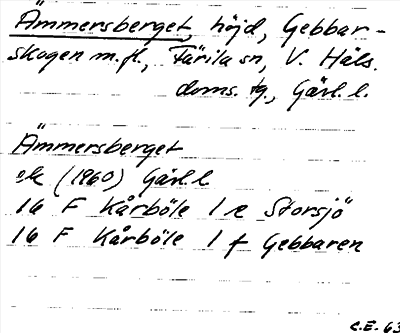 Ämmersberget, höjd, Gebbar-
skogen m.fl., Färila sn, V. Häls.
doms. tg., Gävl. l.
Ämmersberget
ek (1960) Gävl. l
16 F Kårböle 1 e Storsjö
16 F Kårböle 1 f Gebbaren
C.E. 63